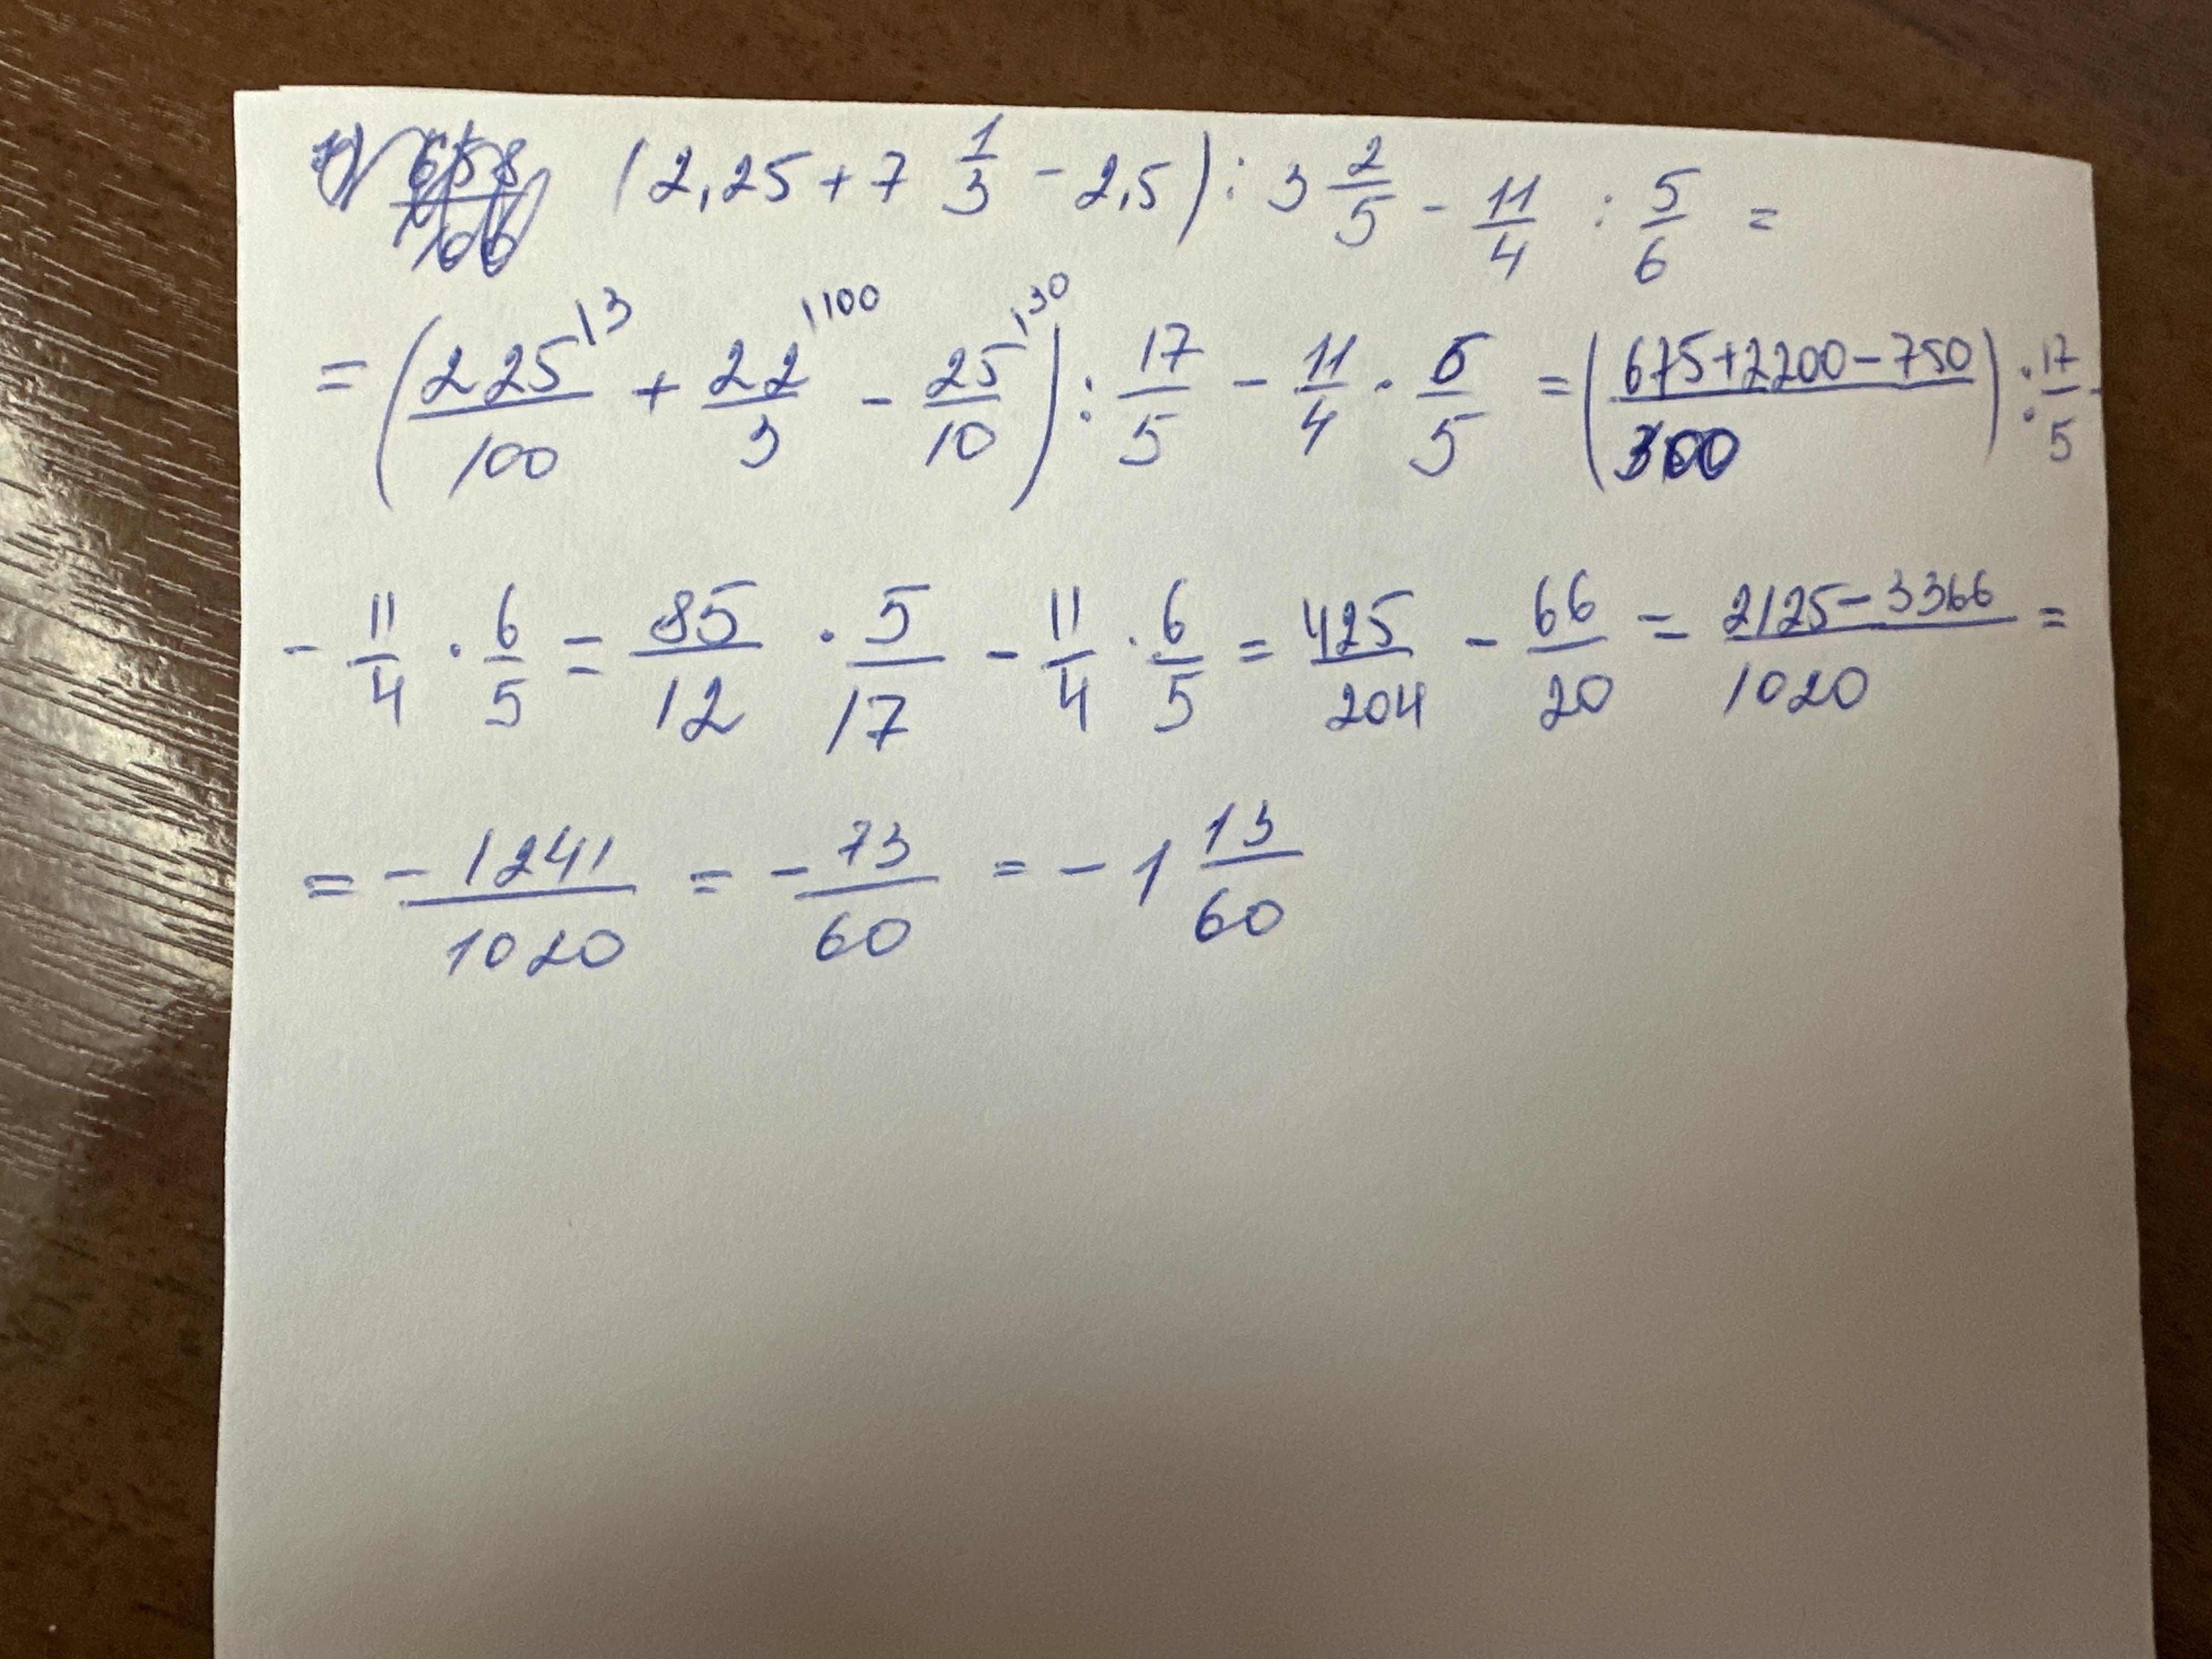 (2,25 + 7 1/3 - 2,5) : 3 2/5 - 11/4 : 5/6 =
= (225/100 |3 + 22/3 |100 - 25/10 |30) : 17/5 - 11/4 · 6/5 = (675+2200-750/300) : 17/5 -
- 11/4 · 6/5 = 85/12 · 5/17 - 11/4 · 6/5 = 425/204 - 66/20 = 2125-3366/1020 =
= - 1241/1020 = - 73/60 = - 1 13/60